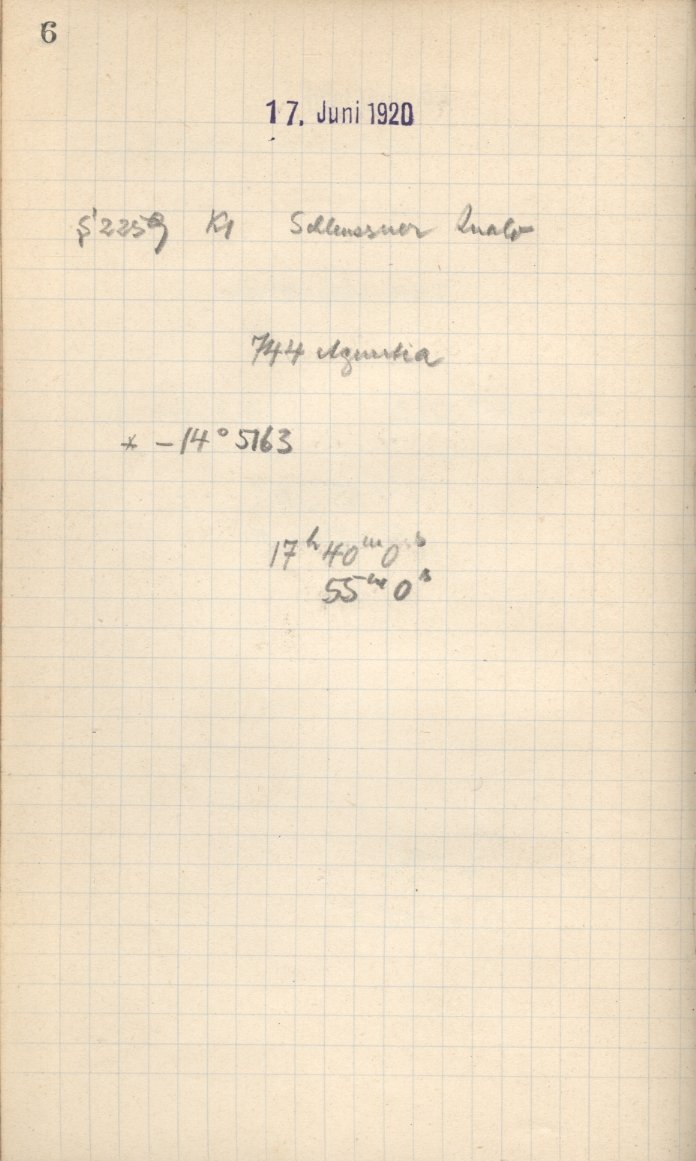 6
17. Juni 1920
S 2259 K1 Schleussner
744 Aguntia
* -14° 5163
17h 40m 0s
55m 0s